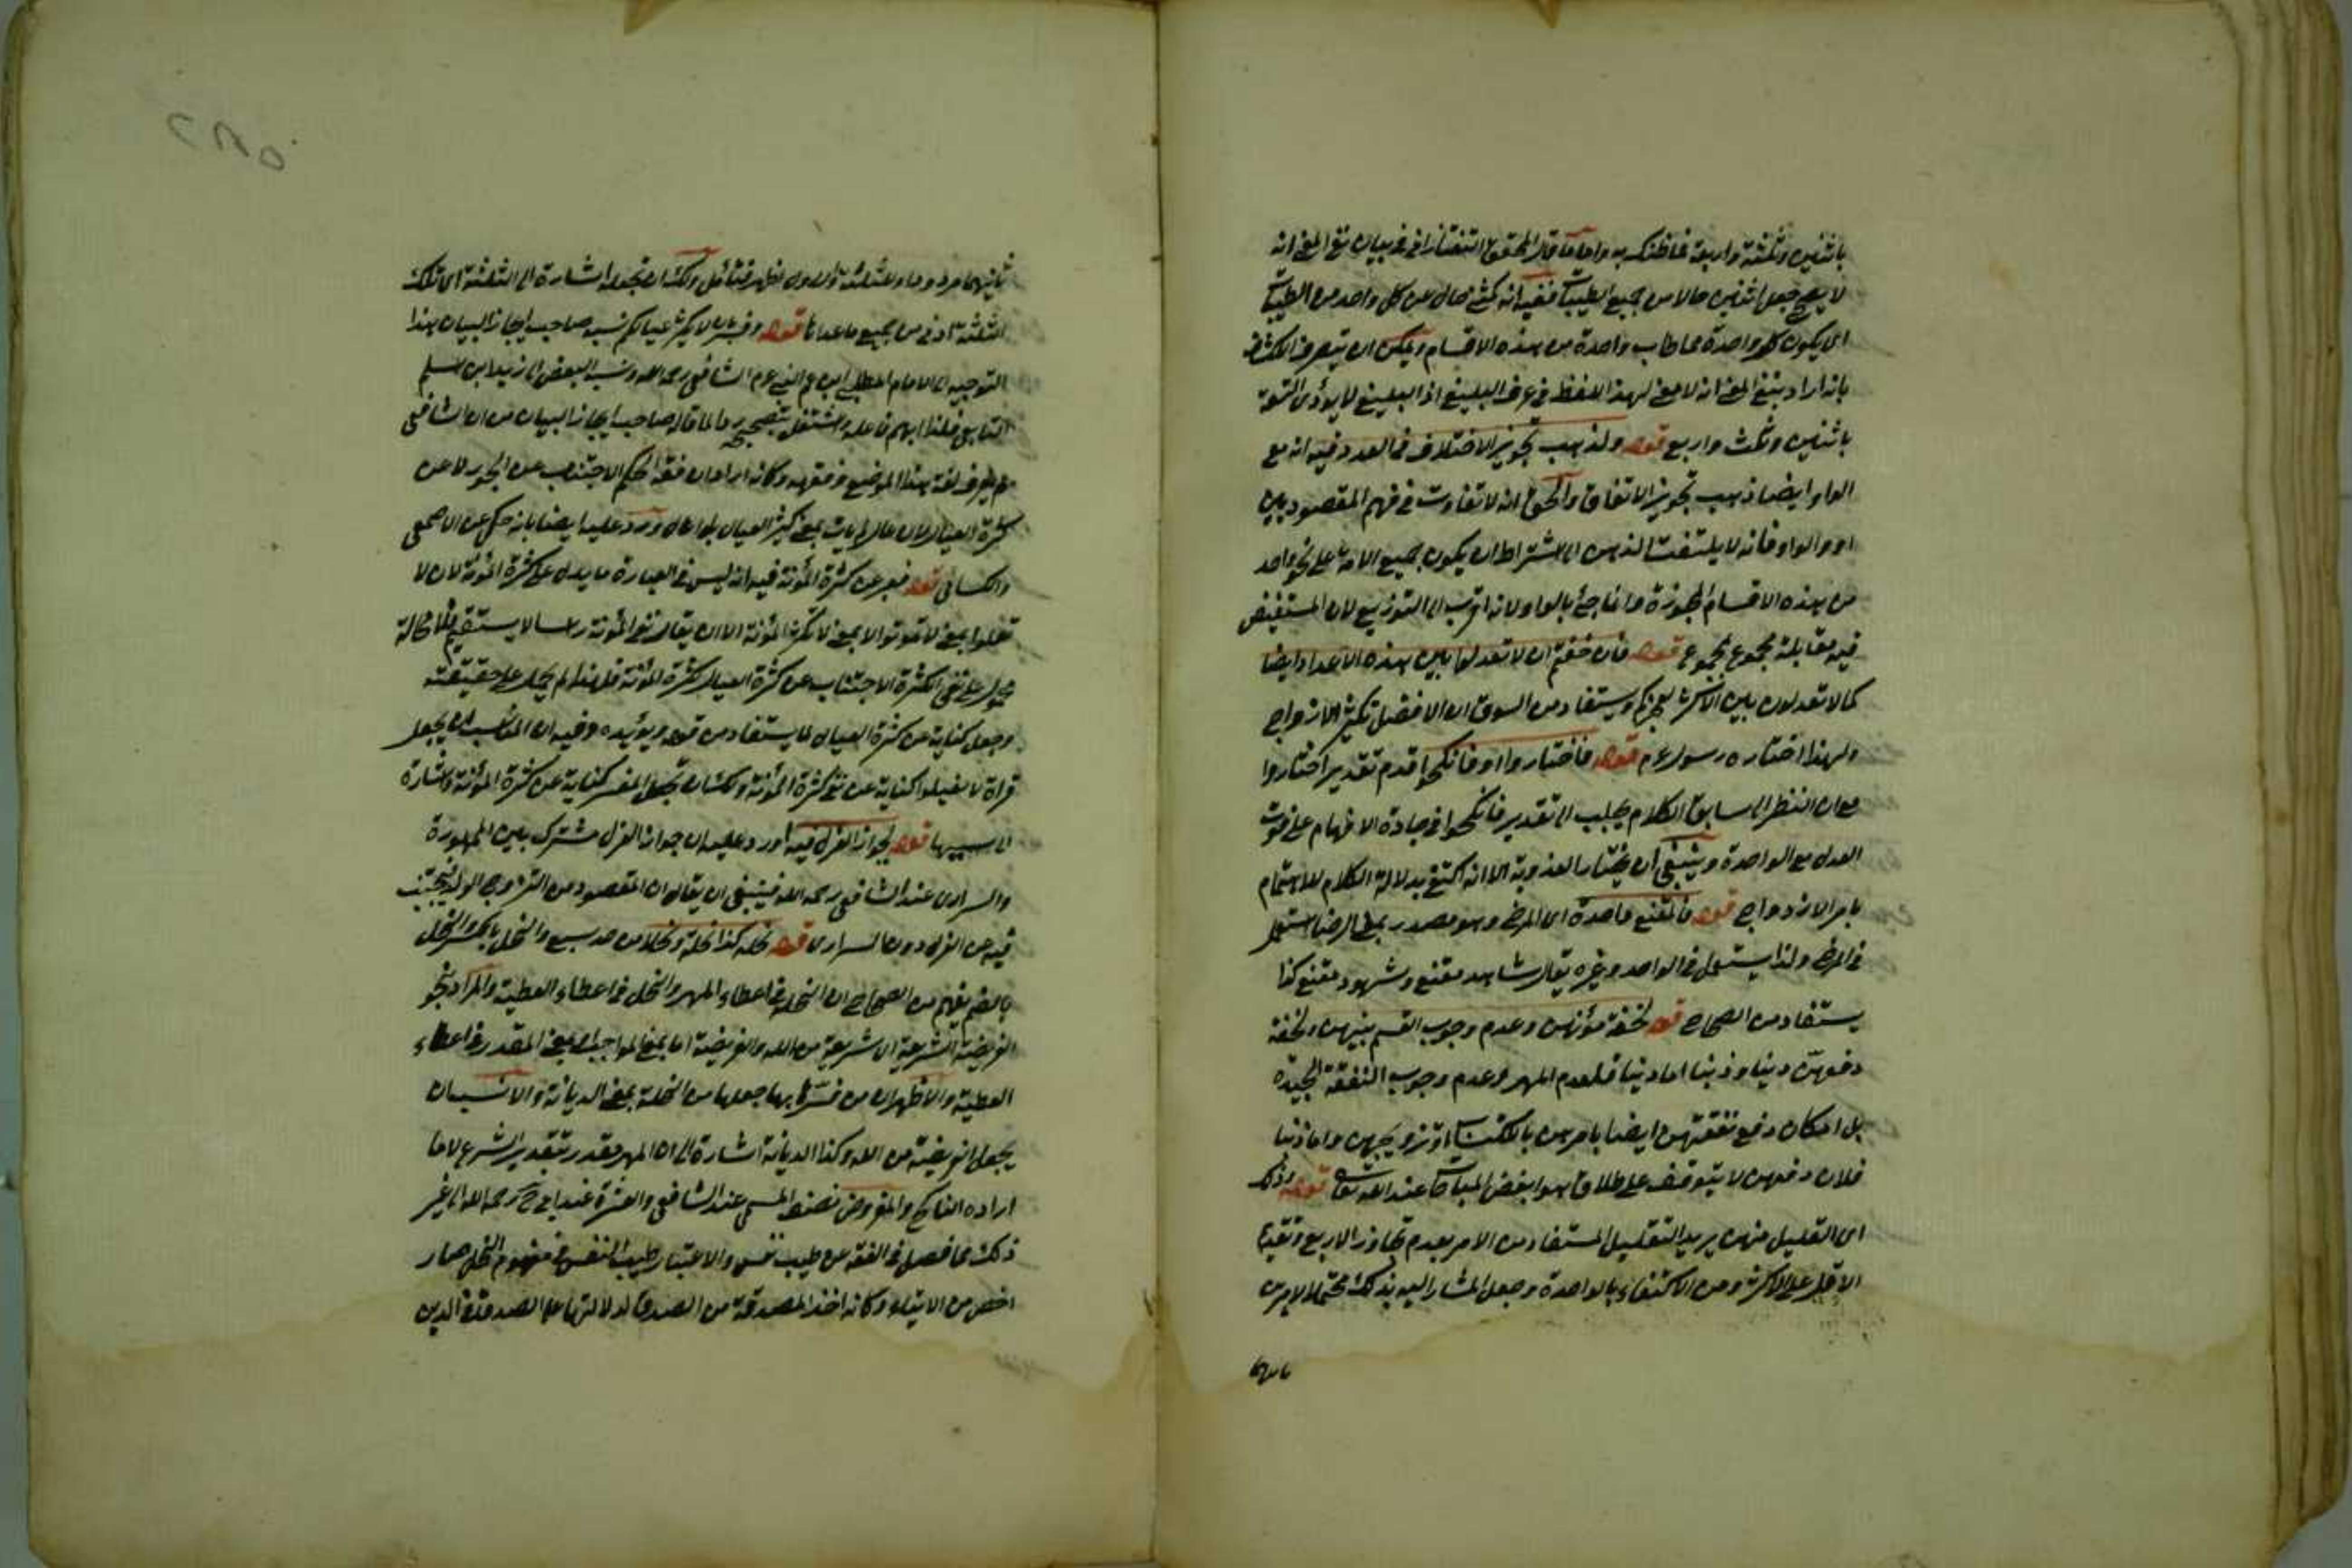 باثنين وثلثة واربعة فما ظنك به واما ما قال المحقق التفتازانى فى بيان نفى المعنى انه
لا يصح جعل اثنين حالا من جميع الطيبات ففيه انه كمثنى حال من كل واحد من الطيبات
اى يكون كل واحدة مما طاب واحدة من هذه الاقسام ويمكن ان يتصرف الكشف
بانه اراد بنفى المعنى انه لا معنى لهذا اللفظ فى عرف البليغ اذ البليغ لا يؤدى
باثنين وثلث واربع قوله ولذهب تجويز الاختلاف فى العدد فيه انه مع
الواو ايضا ذهب تجويز الاتفاق والحق انه لا تفاوت فى فهم المقصود بين
او والواو فانه لا يلتفت الذهن الى اشتراط ان يكون جميع الامة على نحو واحد
من هذه الاقسام المجوزة وانما جئ بالواو لانه اقرب الى التوزيع لان المستفيض
فيه مقابلة مجموع بمجموع قوله فان خفتم ان لا تعدلوا بين هذه الاعداد ايضا
كما لا تعدلون بين الاكثر ويستفاد من السوق ان الافضل تكثير الازواج
ولهذا اختاره رسوله عم قوله فاختاروا او فانكحوا قدم تقدير اختاروا
مع ان النظر الى سابق الكلام يجلب الى تقدير فانكحوا فى جادة الافهام على فوت
العدل مع الواحدة وينبغى ان يختار العذوبة الا انه اكتفى بدلالة الكلام للاهتمام
بامر الازدواج قوله فالمقنع واحدة اى المرضى وهو مصدر بمعنى الرضا استعمل
فى المرضى ولذا يستعمل فى الواحد وغيره يقال شاهد مقنع وشهود مقنع كذا
يستفاد من الصحاح قوله لخفة مؤنهن وعدم وجوب القسم بينهن ولخفة
دفعهن دينا ودنيا اما دينا فلعدم المهر وعدم وجوب النفقة الجيدة
بل امكان دفع نفقتهن ايضا بامرهن بالكتساب او تزويجهن واما دنيا
فلان دفعهن لا يتوقف على طلاق هو ابغض المباحات عند الله تعالى قوله ذلك
اى التقليل منهن يريد التقليل المستفاد من الامر بعدم تجاوز الاربع وتقديم
الاقل على الاكثر ومن الاكتفاء بالواحدة وجعل المشار اليه بذلك محتملا لامرين
ثانيهما
ثانيهما مردودا وللثلثة والاول اظهر فتأمل ولك ان تجعله اشارة الى الثلثة اى تلك
الثلثة ادنى من جميع ما عداها قوله وفسر بان لا يكثر عيالكم نسبه صاحب ايجاز البيان هذا
التوجيه الى الامام المطلبى ابن عم النبى عم الشافعى رحمه الله ونسب البعض الى زيد ابن اسلم
التابعى فلذا ابهم فاعله واشتغل بتصحيحه ردا لما قاله صاحب ايجاز البيان من ان الشافعى
لم يعرف لغة هذا الموضع وفقهه وكانه اراد ان فقه الحكم الاجتناب عن الجور لا عن
كثرة العيال لان عال لم يأت بمعنى كثير العيال بل اعال ورد عليه ايضا بانه حكى عن الاصمعى
والكسائى قوله فعبر عن كثرة المؤنة فيه انه ليس فى العبارة ما يدل على كثرة المؤنة لان لا
تعولوا بمعنى لا تمونوا لا بمعنى لا تكثر المؤنة الا ان يقال نفى المؤنة رأسا لا يستقيم فلا محالة
محمول على نفى الكثرة الاجتناب عن كثرة العيال كثرة المؤنة فلهذا لم يحمل على حقيقته
وجعل كناية عن كثرة العيال لما يستفاد من قوله ويؤيده وفيه ان المناسب ان يجعل
قراة لا تعيلوا كناية عن نفى كثرة المؤنة ولك ان تجعل المفسر كناية عن كثرة المؤنة واشارة
الى سببها قوله لجواز العزل فيه اورد عليه ان جواز العزل مشترك بين المهورة
والسرارى عند الشافعى رحمه الله فينبغى ان يقال ان المقصود من التزوج الولد فيجتنب
فيه عن العزل دون السرارى قوله نحله كذا نحلة ونحلا من حد سمع والنحل بالكسر والنحل
بالضم يفهم من الصحاح ان النحلة فى اعطاء المهر والنحل فى اعطاء العطية والمراد بنحو
الفريضة الشرعية ان شريعة من الله والفريضة اما بمعنى الواجب او بمعنى المقدر فى اعطاء
العطية والاظهر ان من فسرها بها جعلها من النحلة بمعنى الديانة والانسب ان
يجعل الفريضة من الله وكذا الديانة اشارة الى ان المهر مقدر بتقدير الشرع لا ما
اراده الناكح والمفروض نصف المسمى عند الشافعى والعشرة عند ابى ح رحمه الله الى غير
ذلك مما فصل فى الفقه عن طيب نفس والاعتبار طيب النفس فى مفهوم النحل صار
اخص من الايتاء وكانه اخذ المصدقة من الصدق لدلالتها على الصدق فى الدين